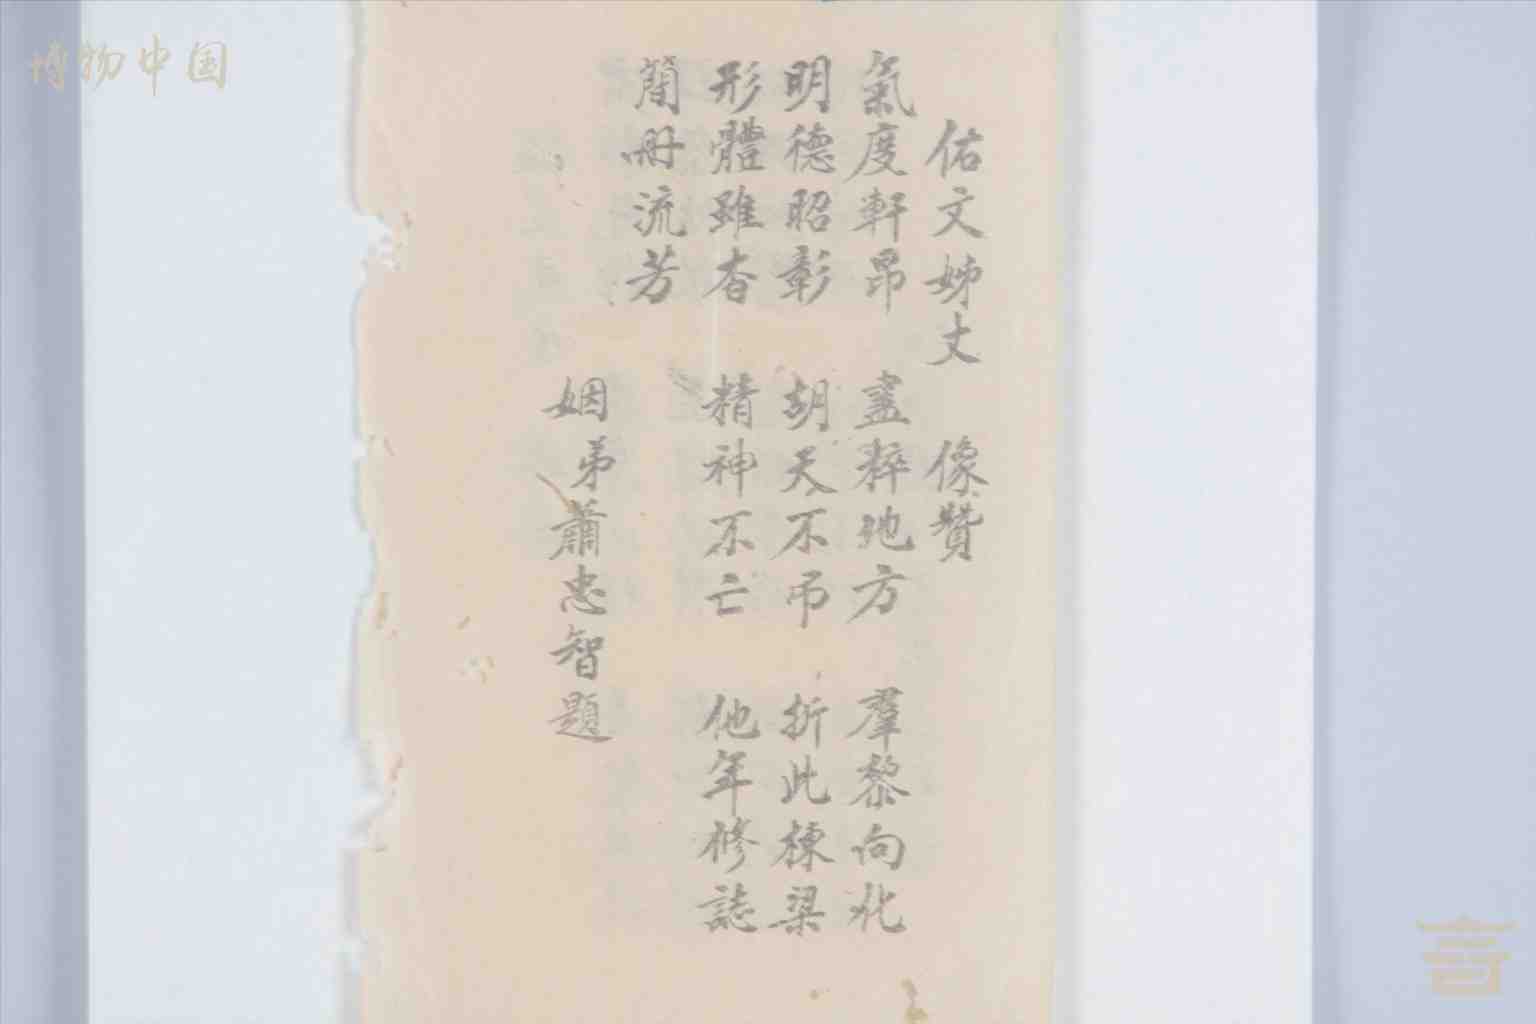 博物中国
佑文姊丈 像贊
氣度軒昂 盡粹地方 羣黎向化
明德昭彰 胡天不弔 折此棟梁
形體雖杳 精神不亡 他年修誌
簡冊流芳
姻弟蕭忠智題